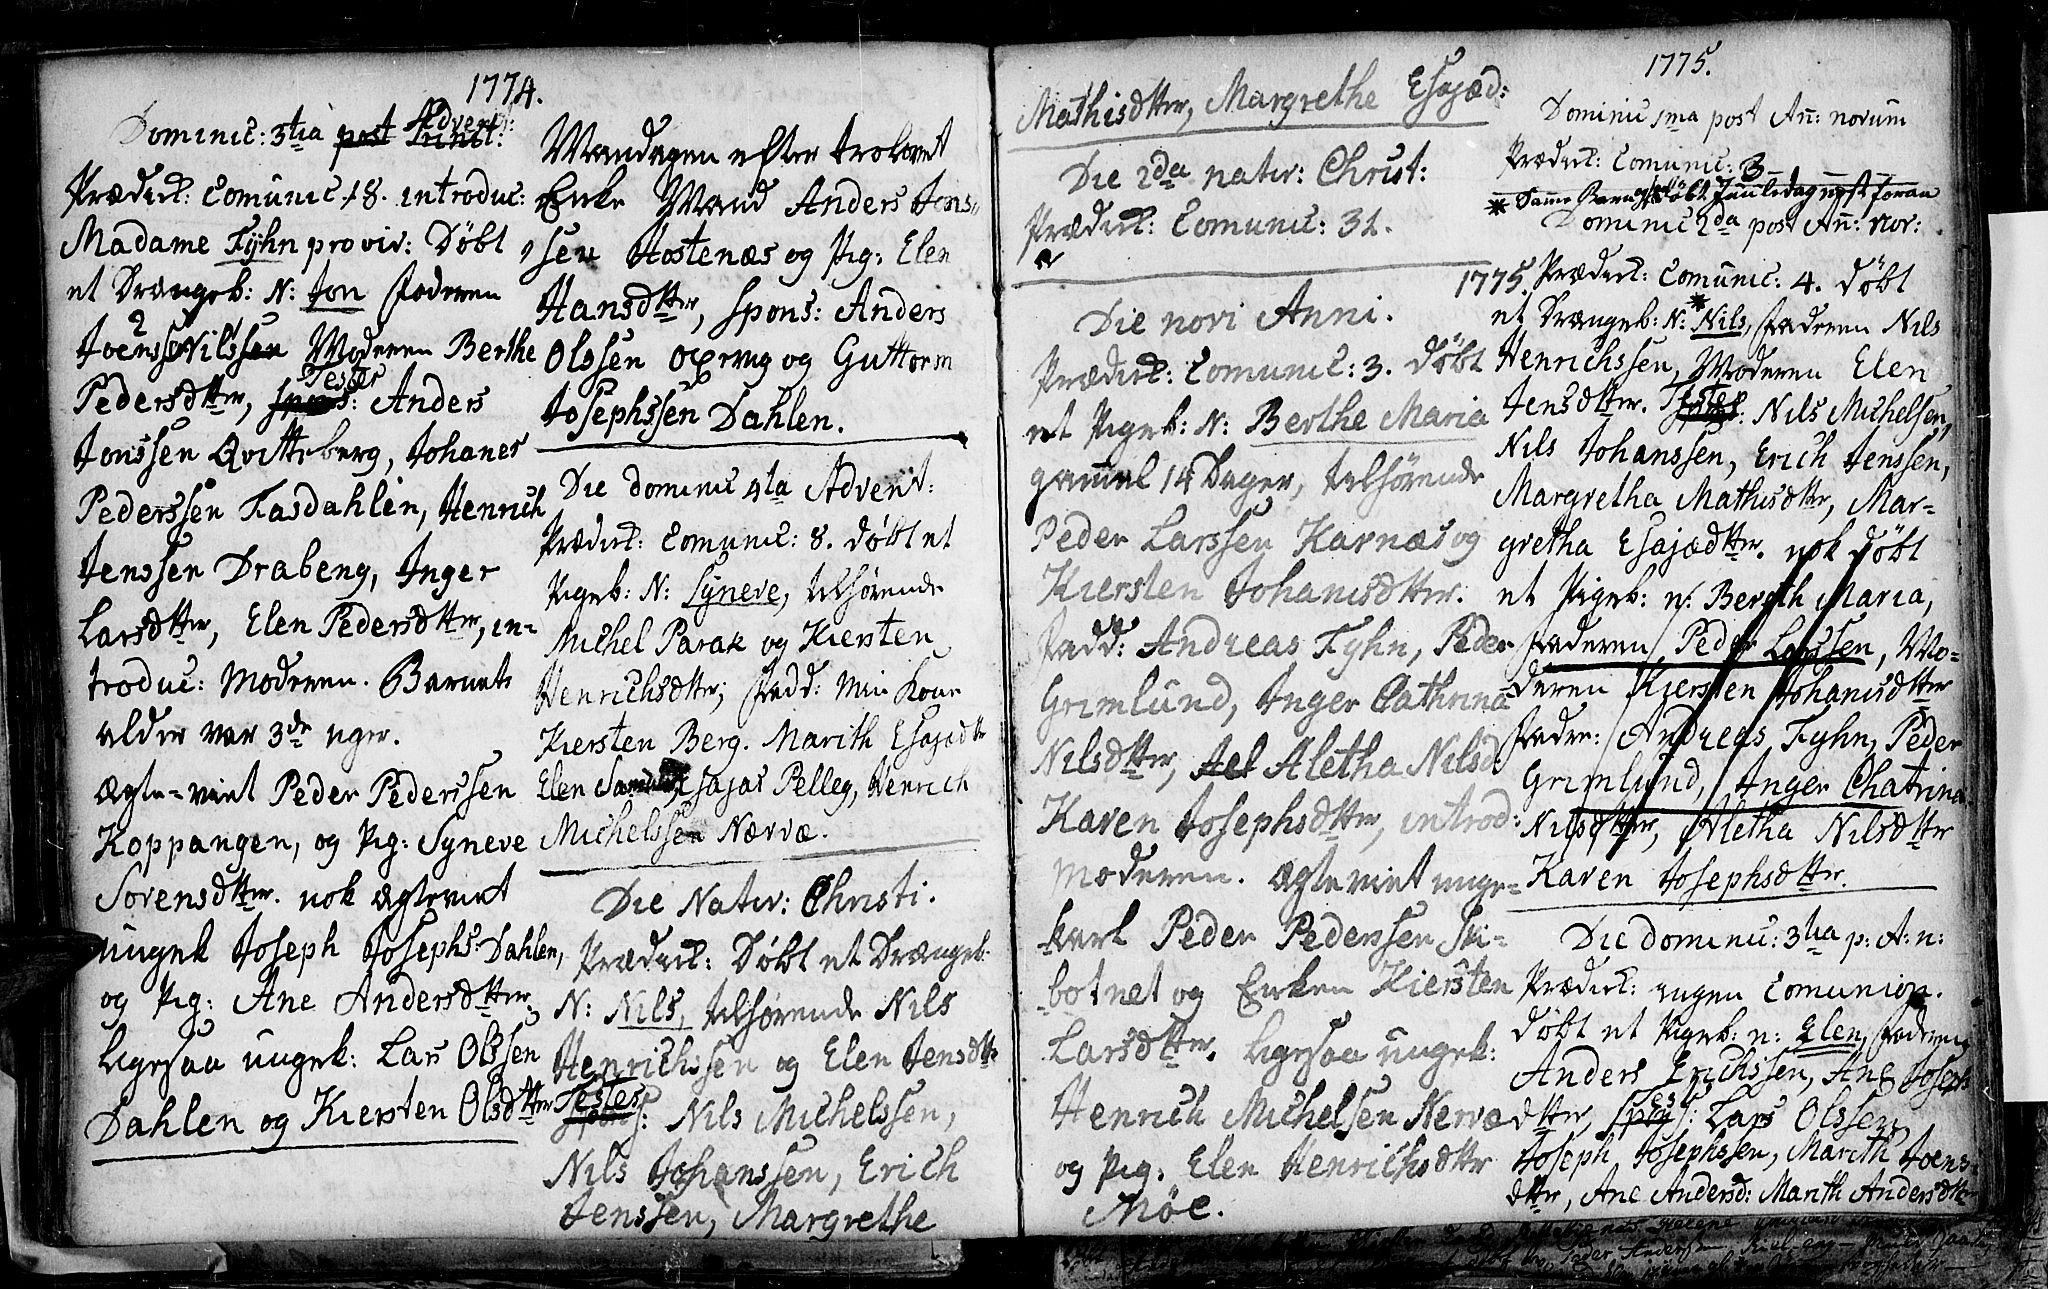 1774.
Dominic: 3tia post Trinit: Advent:
Prædick: Comunic: 18. introduc:
Madame Fyhn pro vir: Døbt
et Drængeb: N: Jon Faderen
Joensen Nilssen Moderen Berthe
Pedersdttr, spons: Testes Anders
Jonssen Qvitteberg, Johanes
Pederssen Fasdahlen, Henrich
Jenssen Drabeng, Inger
Larsdttr, Elen Pedersdttr, in-
troduc: Moderen. Barnets
alder var 3de uger.
Ægte-viet Peder Pederssen
Koppangen, og Pig: Syneve
Sørensdttr. nok ægteviet
ungek Joseph Josephs: Dahlen,
og Pig: Ane Andersdttr.
Ligesaa ungek: Lars Olssen
Dahlen og Kiersten Olsdttr
Mandagen efter trolovet
Enke Mand Anders Jons-
sen Hostenæs og Pig: Elen
Hansdttr, spons: Anders
Olssen Oxevug og Guttorm
Josephssen Dahlen.
Die dominic 4ta Advent:
Prædick: Comunic: 8. døbt et
Pigeb: N: Syneve, tilhørende
Michel Parak og Kiersten
Henrichsdttr; Fadd: Min Kone
Kiersten Berg. Marith Esajædttr
Elen Esajas Pelleg, Henrich
Michelssen Nærvæ.
Die Nativ: Christi.
Prædick: Døbt et Drængeb:
N: Nils, tilhørende Nils
Henrichssen og Elen Jensdttr
Testes spons: Nils Michelssen,
Nils Johanssen, Erich
Jenssen, Margrethe
Mathisdttr, Margrethe Esajæd:
Die 2da nativ: Christ:
Prædick: Comunic: 31.
1775.
Die novi Anni.
Prædick: Comunic: 3. døbt
et Pigeb: N: Berthe Maria
gamel 14 Dager, tilhørende
Peder Larssen Karnæs og
Kiersten Johanisdttr.
Fadd: Andreas Fyhn, Peder
Grimlund, Inger Cathrina
Nilsdttr, Ael Aletha Nilsd
Karen Josephsdttr, introd:
Moderen. Ægteviet unge-
karl Peder Pederssen Ski-
botnet og Enken Kiersten
Larsdttr. Ligesaa ungek:
Henrich Michelsen Nervæ
og Pig: Elen Henrichsdttr
Møe.
1775.
Dominic 1ma post Añ: novum
Prædick: Comunic: 3
* Same Barn døbt Juuledag næst foran
Dominic 2da post Añ: nov:
Prædick: Comunic: 4. døbt
et Drængeb: N: * Nils, Faderen Nils
Henrichssen, Moderen Elen
Jensdttr. Testes: Nils Michelsen,
Nils Johanssen, Erich Jenssen,
Margretha Mathisdttr, Mar-
gretha Esajædttr. nok døbt
et Pigeb: N: Bereth Maria,
Faderen Peder Larssen, Mo-
deren Kjersten Johanisdttr
Fadre: Andreas Fyhn, Peder
Grimlund, Inger Chatrina
Nilsdttr, Aletha Nilsdttr
Karen Josephsdttr.
Die dominic: 3tia p: A: n:
Prædick: ingen Comunion.
Døbt et Pigeb: n: Elen, Faderen
Anders Erichssen, Ane Joseph
dttr, spons: Test Lars Olssen,
Joseph Josephssen, Marith Joens-
dttr, Ane Andersd: Marith Andersdttr